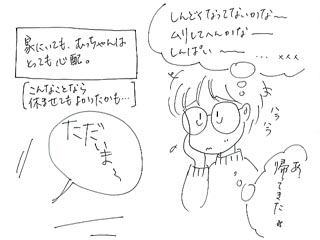 家にいても、むっちゃんは
とっても心配。
こんなことなら
休ませてもよかったかも…
しんどくなってないかな〜
ムリしてへんかな〜
しんぱい〜 … ×××
ハラ
ハラ
ただ
いま〜
あ!
帰ってきた